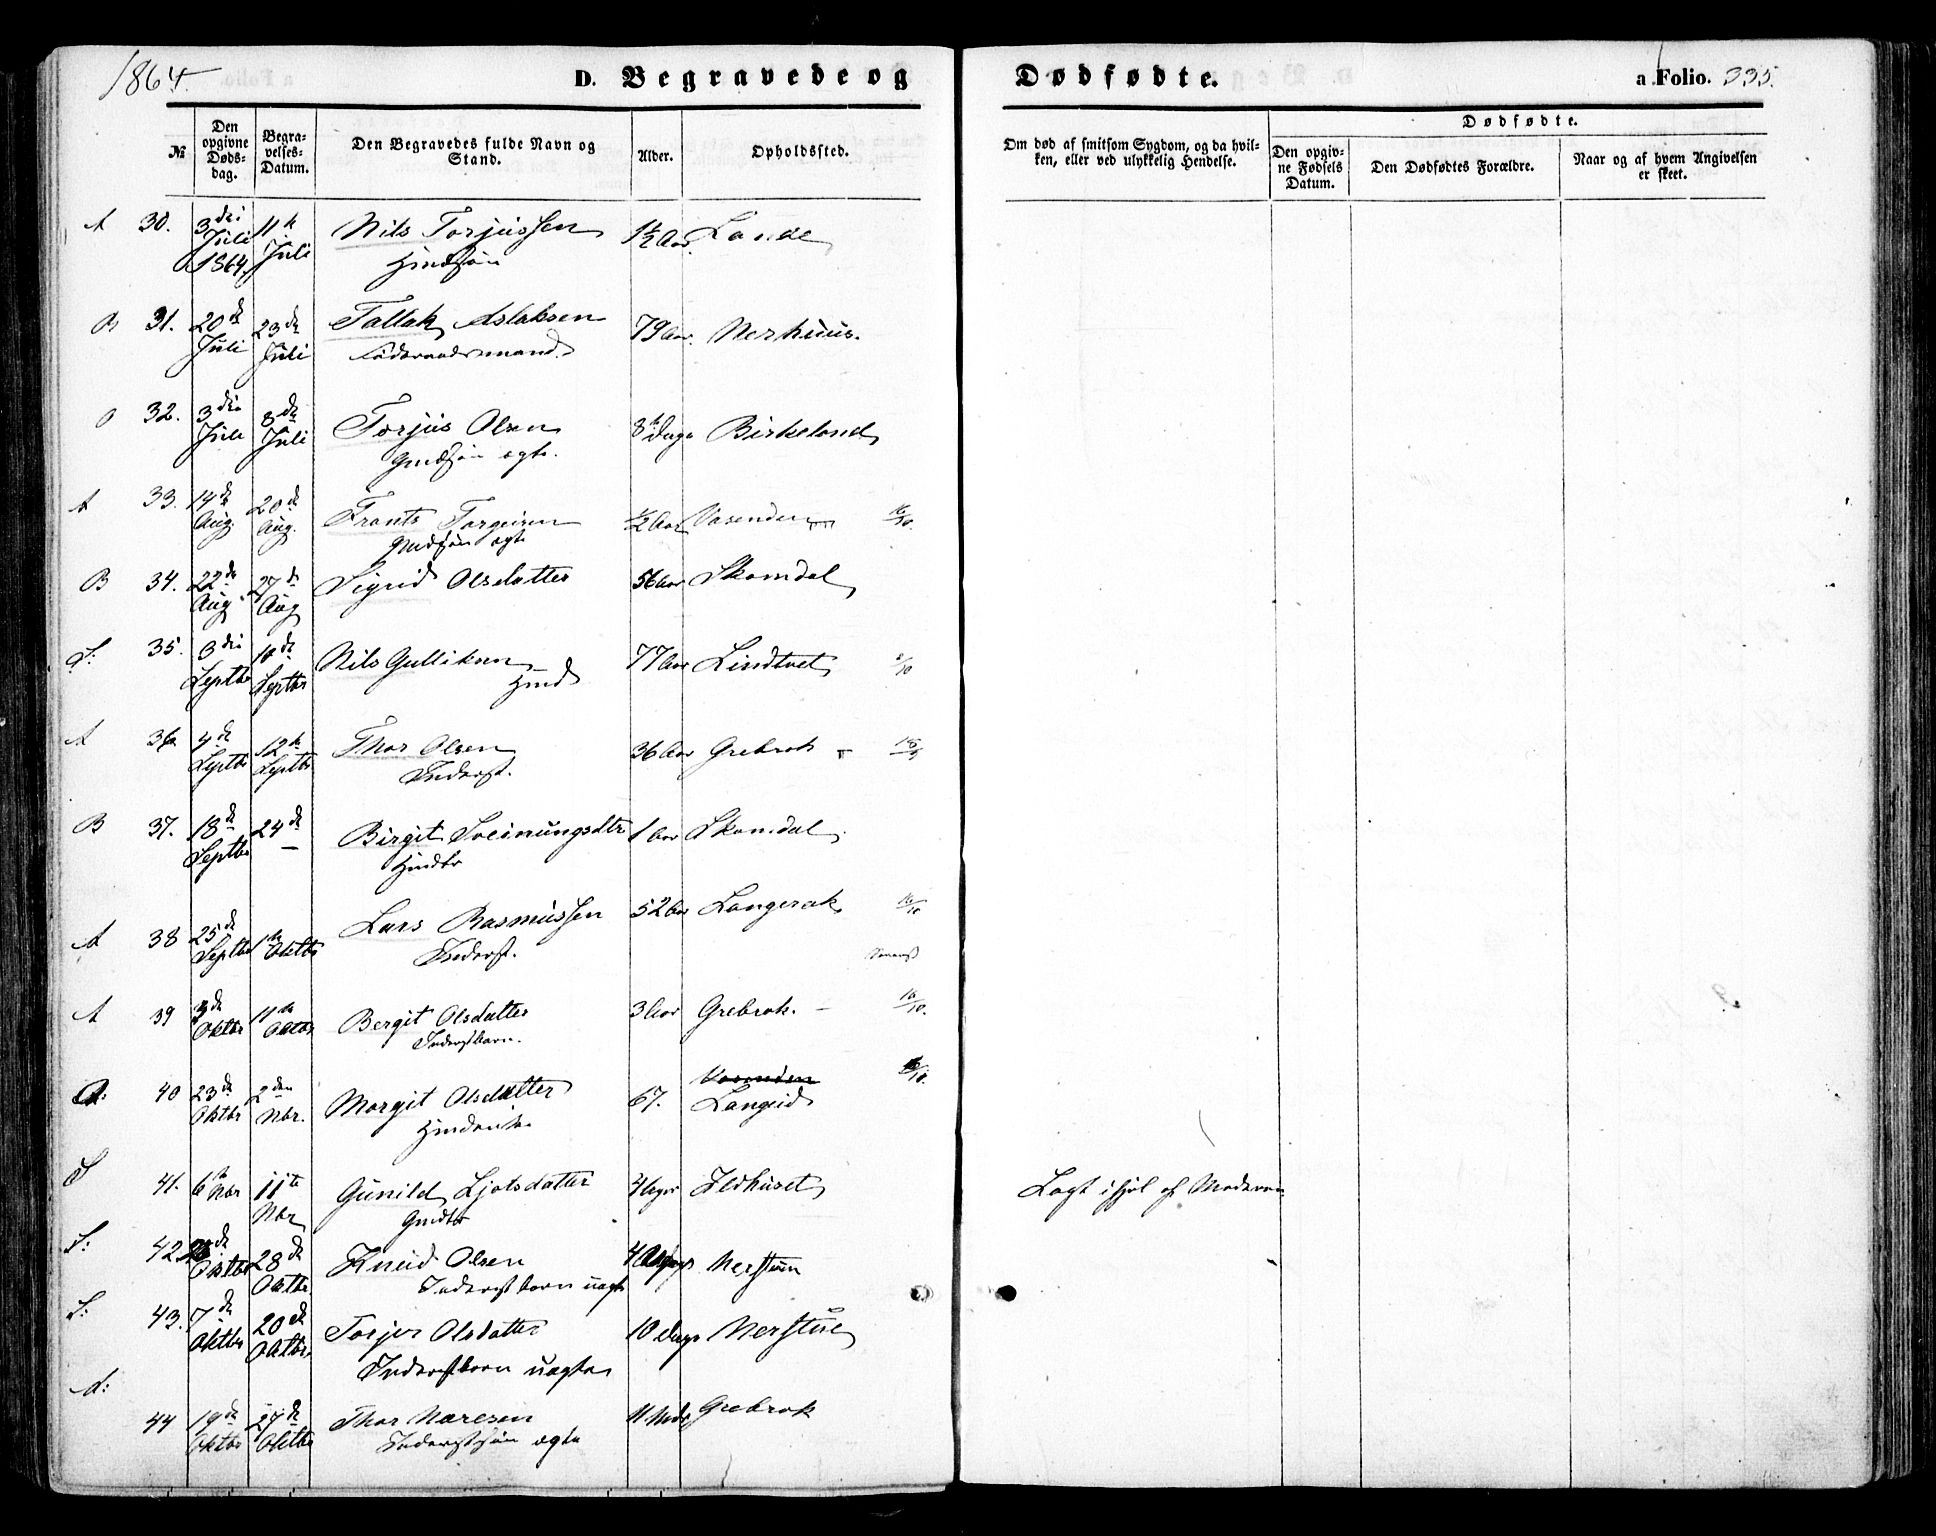 1864.
D. Begravede og Dødfødte.
a Folio. 335.
№
Den opgivne Døds-dag.
Begra-velses-Datum.
Den Begravedes fulde Navn og Stand.
Alder.
Opholdssted.
Om død af smitsom Sygdom, og da hvil-ken, eller ved ulykkelig Hendelse.
Dødfødte.
Den opgiv-ne Fødsels Datum.
Den Dødfødtes Forældre.
Naar og af hvem Angivelsen er skeet.
A 30. 3die Juli 1864. 11te Juli Nils Torjussen 1½ Aar Lande
B 31. 20de Juli 23de Juli Tallak Aslaksen 79 Aar. Nerhuus.
Föderaadsmand
O 32. 3die Juli 8de Juli Torjus Olsen 8te Dage Birkeland
Gmdsøn ægte.
A 33. 14de Aug. 20de Aug. Frants Torgeirsen ½ Aar Vasenden 16/10.
Gmdsøn ægte
B 34. 22de Aug. 27de Aug Sigrid Olsdatter 56 Aar Skomdal
S: 35. 3die Septbr Septbr Nils Gulliksen 77 Aar Lindtvet
Hmd
A 36 4de Septbr 12te Septbr Thor Olsen 36 Aar Grebrok
Inderst.
B 37. 18de Septbr 24de — Birgit Sveinungsdtr 1 Aar Skomdal
A 38 25de Septbr 1te Oktbr Lars Rasmussen 52 Aar Langerak 16/10
Inderst.
A 39 3de Oktbr 11te Oktbr Bergit Olsdatter 3 Aar Grebrok. 16/10.
Inderstbarn.
A: 40 23de Oktbr 2den Nbr. Margit Olsdatter 67. Vasenden Langeid
S 41. 6te Nbr 11te Nbr Gunild Ljotsdatter Ildhuset Lagt ihjel af Moderen
Gmdtr
S: 42 Oktbr 28de Oktbr. Knud Olsen Nerstuen
Inderstbarn uægte
S: 43. 7de Oktbr 20de Oktbr. Torjer Olsdatter 10 Dage Nerstue
Inderstbarn uægte
A: 44 19de Oktbr 27de Oktbr Thor 11 Grebrok
Inderstsøn ægte